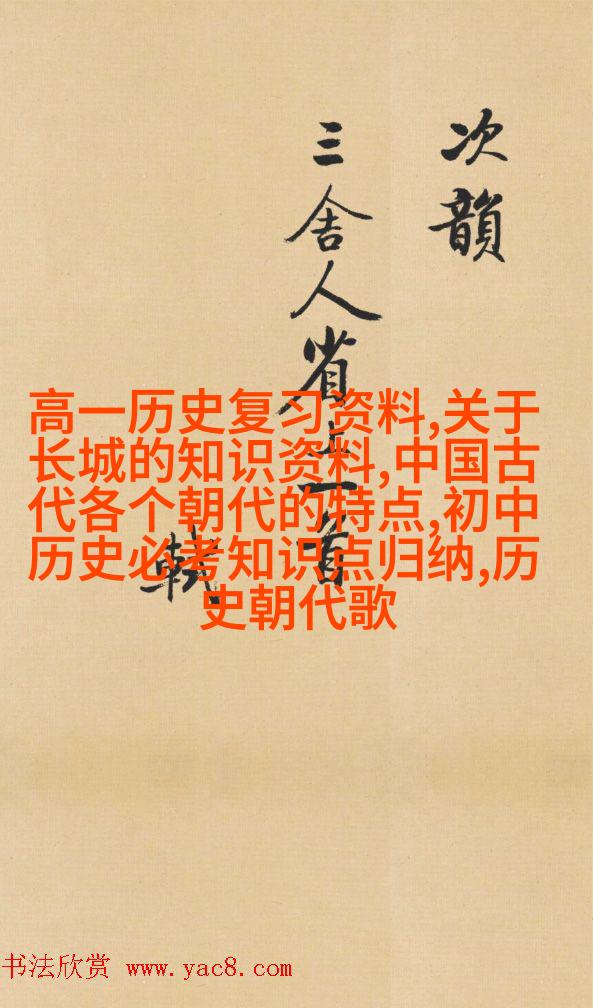 次韻
三舍人省上一首
軾
高一历史复习资料,关于
长城的知识资料,中国古
代各个朝代的特点,初中
历史必考知识点归纳,历
史朝代歌
书法欣赏 www.yac8.com